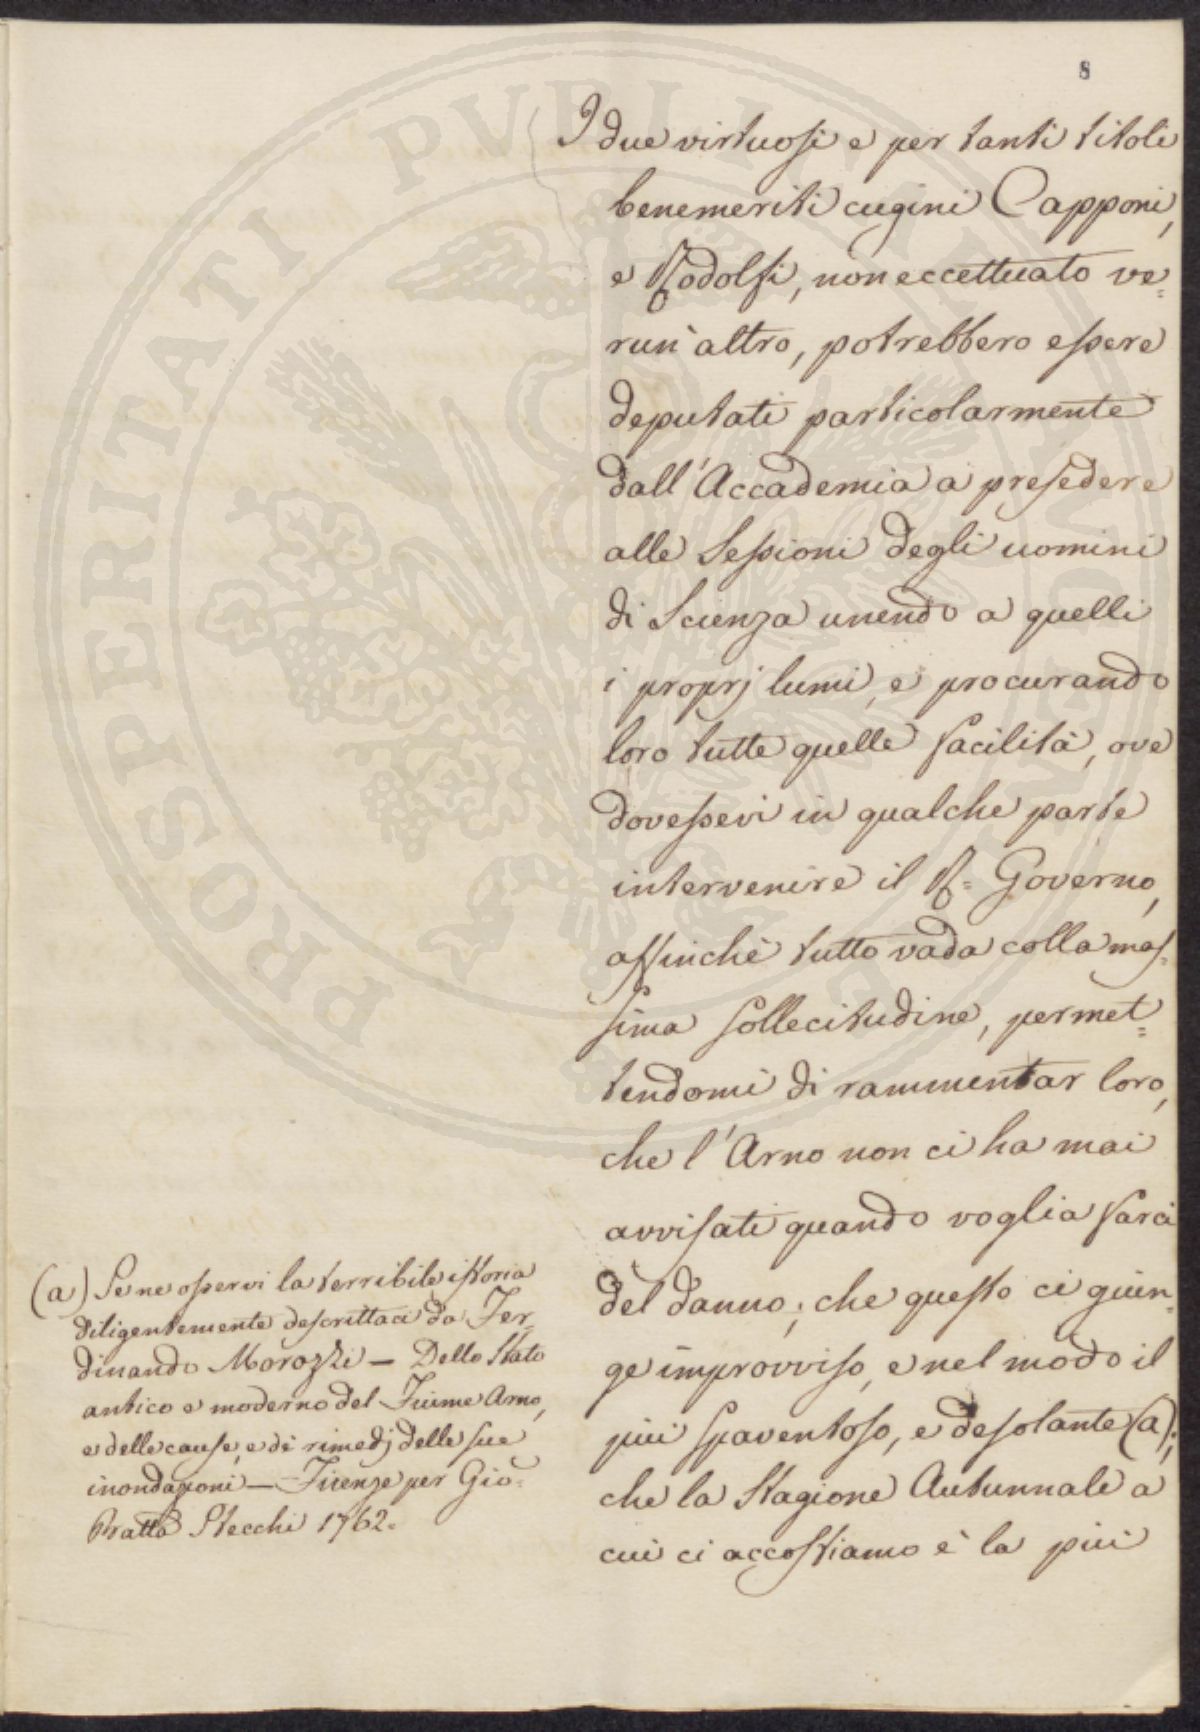 8
I due virtuosi e per tanti titoli
benemeriti cugini Capponi,
e Rodolfi, non eccettuato ve=
run'altro, potrebbero essere
deputati particolarmente
dall'Accademia a presedere
alle Sessioni degli uomini
di Scienza unendo a quelli
i proprj lumi, e procurando
loro tutte quelle facilità, ove
dovessevi in qualche parte
intervenire il R= Governo,
affinchè tutto vada colla mas=
sima sollecitudine, permet=
tendomi di rammentar loro,
che l'Arno non ci ha mai
avvisati quando voglia farci
del danno; che questo ci giun=
ge improvviso, e nel modo il
più spaventoso, e desolante (a);
che la Stagione Autunnale a
cui ci accostiamo è la più
(a) Se ne osservi la terribile istoria
diligentemente descrittaci da Fer=
dinando Morozzi — Dello Stato
antico e moderno del Fiume Arno,
e delle cause, e dè rimedj delle sue
inondazioni — Firenze per Gio=
Bratta Stecchi 1762.
PROSPERITATI PVBLICAE AVGENDAE